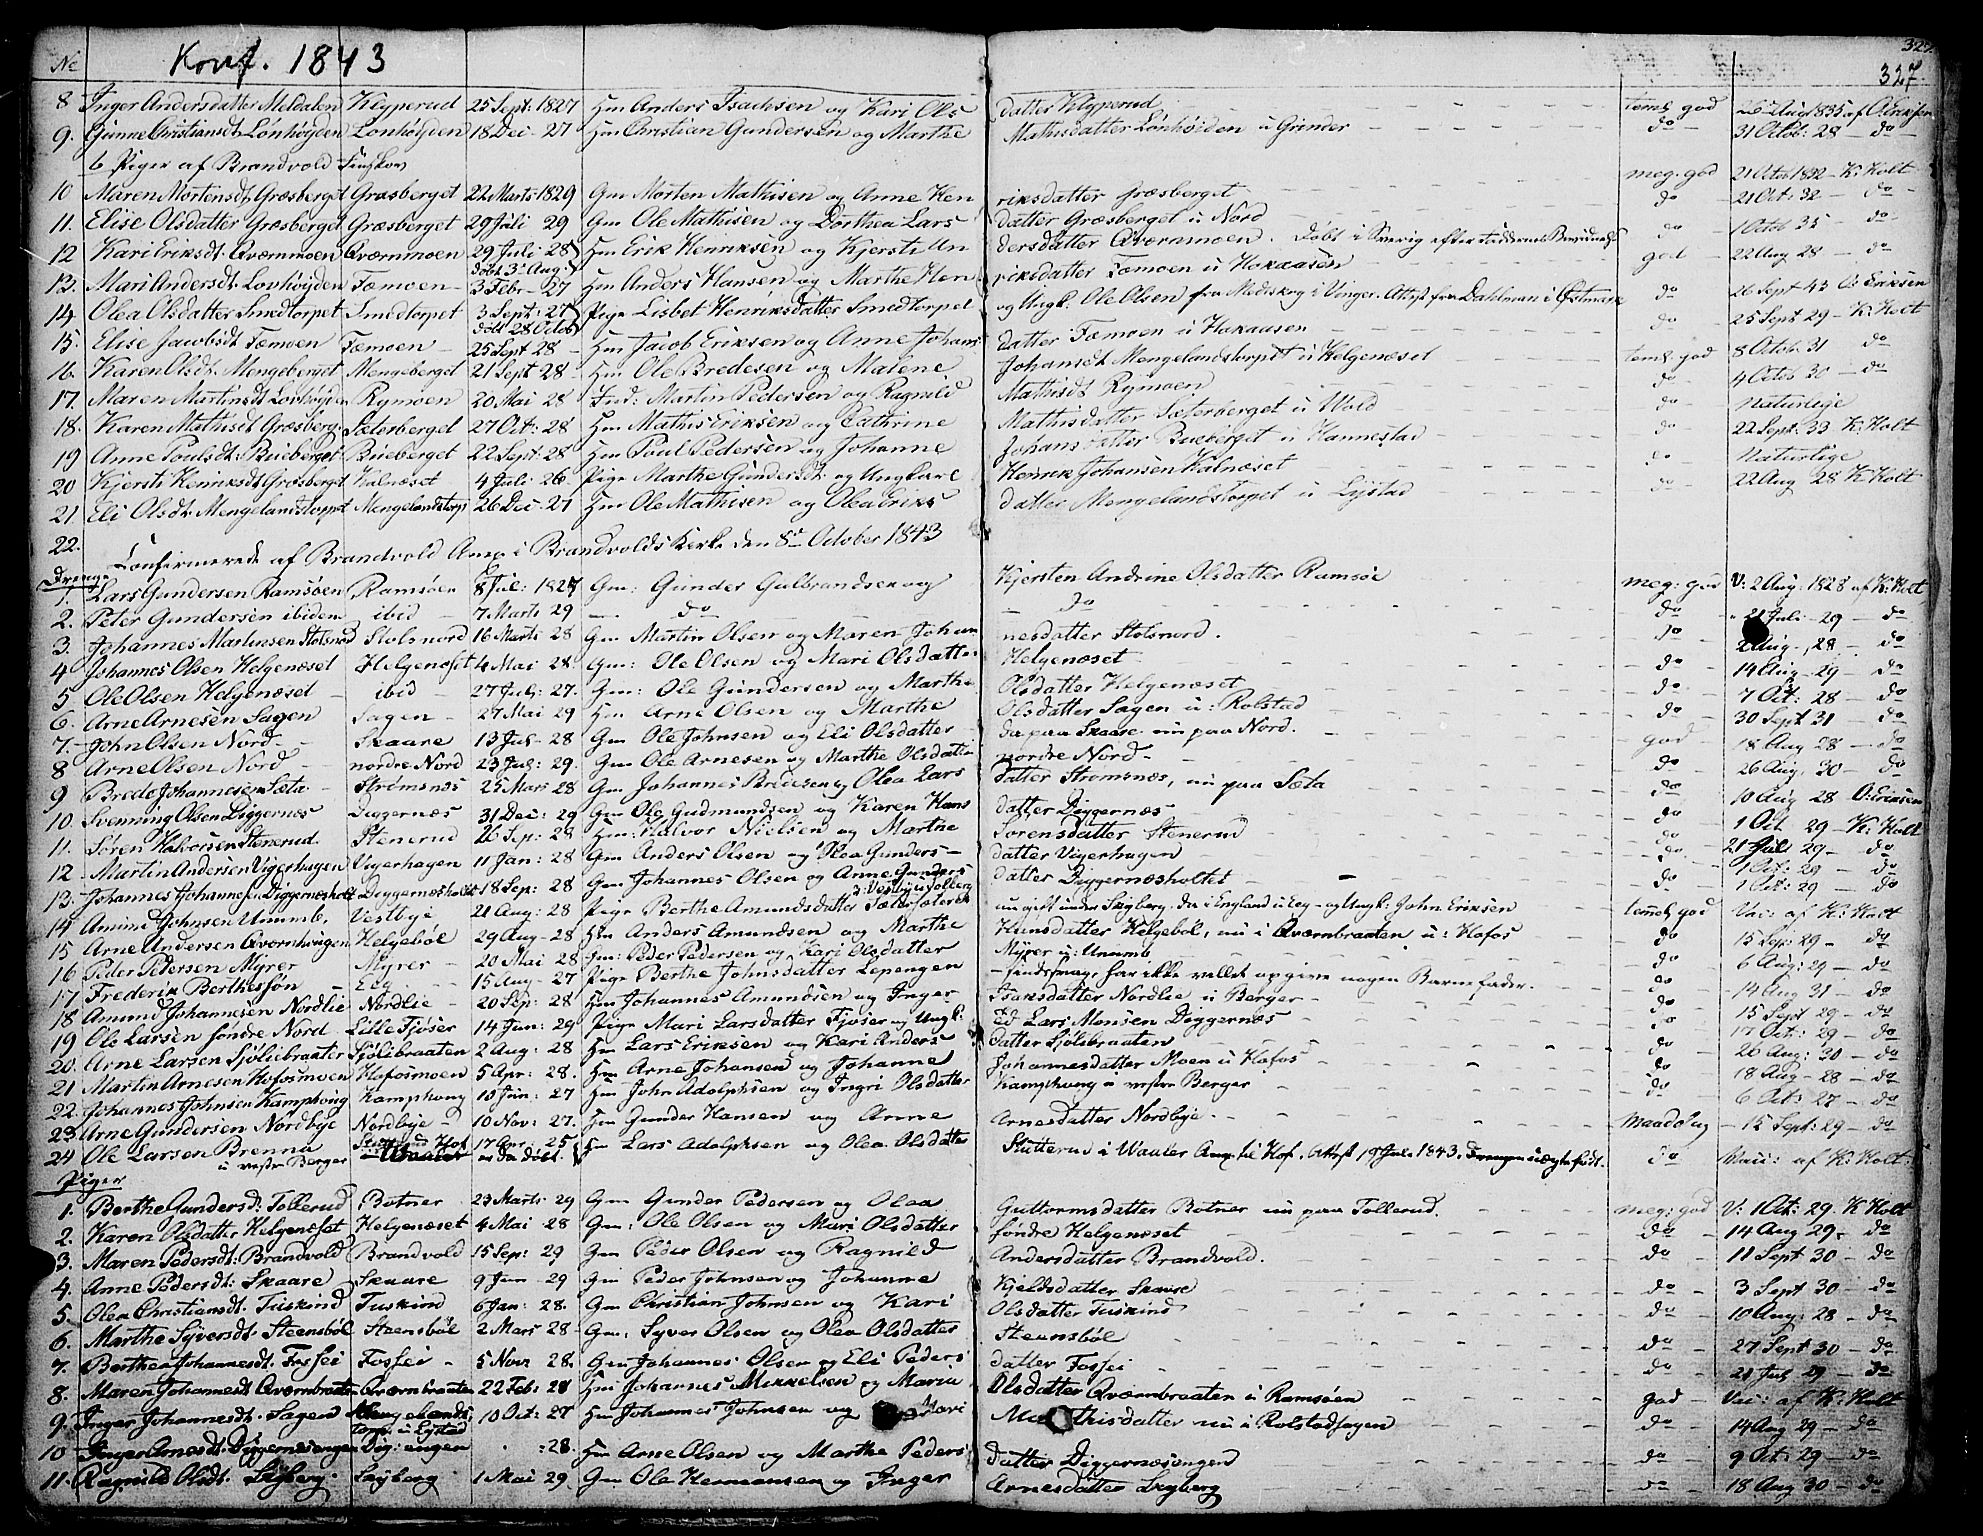 327.
Konf. 1843
327.
No
8 Inger Andersdatter Meldalen Klyperud 25 Sept: 1827 Hm Anders Isachsen og Kari Ols datter Klyperud teml. god 26 Aug 1835 af O: Eriksen
9. Gunne Christiansdt. Lönhöyden Lonhöyden 18 Dec - 27 Hm Christian Gundersen og Marthe Mathisdatter Lönhöiden u Grinder do 31 Octob: 28 - do
6 Piger af Brandvold Finskov
10 Maren Mortensdt. Græsberget Græsberget 22 Marts 1829 Gm Morten Mathisen og Anne Hen riksdatter Græsberget meg. god 21 Octob 1832 - K: Holt
11. Elise Olsdatter Græsberget Græsberget 29 Juli 29 Gm Ole Mathisen og Dorthea Lars datter Græsberget u Nord do 21 Oct: 32 - do
12 Kari Eriksdt. Qværnmoen Qværnmoen 29 Juli 28 Hm Erik Henriksen og Kjersti An dersdatter Qværnmoen. döbt i Sverig efter do 1 Octob 35 - do
döbt 3 Aug:
13. Mari Andersdt. Lovhöyden Tæmoen 3 Febr - 27 Hm Anders Hansen og Marthe Hen riksdatter Tæmoen u Hokaasen god 22 Aug 28 - do
14. Olea Olsdatter Smedtorpet Smedtorpet 3 Sept: 27 Pige Lisbet Henriksdatter Smedtorpet og Ungk. Ole Olsen fra Medskog i Vinger. Attest fra Dahlman i Östmark do 26 Sept 43 O: Eriksen
döbt 28 Octob
15. Elise Jacobsdt Tæmoen Tæmoen 25 Sept 28 - Hm Jacob Eriksen og Anne Johans datter Tæmoen u Hokaasen do 25 Sept 29 - K: Holt
16. Karen Olsdt. Mengeberget Mengeberget 21 Sept 28 - Hm Ole Bredesen og Malene Johansdt Mengelandstorpet u Helgenæset teml. god 8 Octob. 31 do
17. Maren Martinsdt Lovhöyden Rymoen 20 Mai 28 Ind: Martin Pedersen og Ragnild Mathisdt Rymoen do 4 Octob 30 - do
18. Karen Mathisdt Græsberg. Sæterberget 27 Oct: 28 Hm Mathis Eriksen og Cathrine Mathisdatter Sæterberget u Wold do Naturlige
19 Anne Poulsdt: Bueberget Bueberget 22 Sept: 28 Hm Poul Pedersen og Johanne Johansdatter Bueberget u Hannestad do 22 Sept: 33 K: Holt
20 Kjersti Henriksdt Græsberget Kalnæset 4 Juli: 26 Pige Marthe Gundersdt og Ungkarl Henrik Johansen Kalnæset do Naturlige
21. Eli Olsdt. Mengelandstorpet Mengelandstorp 26 Dec - 27 Hm Ole Mathisen og Olea Eriks datter Mengelandstorpet u Lystad do 22 Aug 28 K Holt
22. Confirmerede af Brandvold Anx i Brandvolds Kirke den 8de October 1843
Drenge
1. Lars Gundersen Ramsöen Ramsöen 8 Jul: 1827 Gm: Gunder Gulbrandsen og Kjersten Andrine Olsdatter Ramsöe meg: god V: 2 Aug: 1828 af K: Holt
2. Peter Gundersen ibidem ibid 7 Marts 29 - do - do do 21 Juli 29 - do
3. Johannes Martinsen Stolsnord Stolsnord 16 Marts 28 Gm Martin Olsen og Maren Johan nesdatter Stolsnord. do 2 Aug 28 - do
4 Johannes Olsen Helgenæset Helgenæset 4 Mai 28 Gm: Ole Olsen og Mari Olsdatter Helgenæset do 14 Aug - 29 - do
5 Ole Olsen Helgenæset ibid 27 Jul: 27. Gm: Ole Gundersen og Marthe Olsdatter Helgenæset do 7 Oct: 28 - do
6. Arne Arnesen Sagen Sagen 27 Mai 29 Hm Arne Olsen og Marthe Olsdatter Sagen u: Rolstad do 30 Sept 31 - do
7. John Olsen Nord Skaare 13 Jul - 28 Gm Ole Johnsen og Eli Olsdatter da paa Skaare nu paa Nord. god 18 Aug 28 - do
8 Arne Olsen Nord nordre Nord 23 Jul: 29. Gm Ole Arnesen og Marthe Olsdatter nordre Nord do 26 Aug. 30 - do
9 Brede Johannesen Sæta Strömsnæs 25 Mars 28 Gm Johannes Bredesen og Olea Lars datter Strömsnæs, nu paa Sæta do 10 Aug 28 O: Eriksen
10. Svenning Olsen Diggernæs Diggernæs 31 Dec: 29 Gm Ole Gudmundsen og Karen Hans datter Diggernæs do 1 Oct 29 - K: Holt
11. Sören Halvorsen Stenerud Stenerud 26 Sep: 28 Hm: Halvor Nielsen og Marthe Sörensdatter Stenerud do 21 Jul 29 - do
12 Martin Andersen Vigerhagen Vigerhagen 11 Jan: 28 Gm Anders Olsen og Olea Gunders datter Vigerhagen do 1 Oct: 29 - do
13. Johannes Johannes: Diggernæsholt Diggernæsholt 18 Sep: 28 Gm Johannes Olsen og Anne Gunders datter Diggernæsholtet do 1 Oct: 29 - do
14 Amund Johnsen Ummb. Vestbye 21 Aug: 28 Pige Berthe Amundsdatter nu gift under Skyberg. da i England u Eeg - og Ungk: John Eriksen temmel god Vac: af K: Holt
15 Arne Andersen Qvornhougen Helgeböl 29 Aug - 28 Hm Anders Amundsen og Marthe Hansdatter Helgeböl, nu i Qværnbraaten u: Hofos do 15 Sep: 29 - do
16 Peder Pedersen Myrer Myrer 20 Mai 28 Hm: Peder Pedersen og Kari Olsdatter Myrer u: Ummb. do 6 Aug: 29 - do
17 Frederik Berthessön Eeg 15 Aug - 27 Pige Berthe Johnsdatter Lepengen - har ikke villet opgive nogen Barnefader. do 14 Aug 31 - do
18 Amund Johannesen Nordlie Nordlie 20 Sep: 28 Hm Johannes Amundsen og Inger Isaksdatter Nordlie u Berger do 15 Sept 29 - do
19 Ole Larsen söndre Nord Lille Fjöser 14 Jan: 29 Pige Mari Larsdatter Fjöser og Ungk: Lars Monsen Diggernæs do 17 Oct: 29 - do
20. Arne Larsen Sjölibraaten Sjölibraaten 2 Aug: 28 Hm Lars Eriksen og Kari Anders datter Sjölibraaten do 26 Aug: 30 - do
21 Martin Arnesen Hofosmoen Hofosmoen 5 Apr: 28. Hm Arne Johansen og Johanne Johannesdatter Moen u Hofos do 18 Aug - 28 - do
22. Johannes Johnsen Kamphoug Kamphoug 10 Jun: 27 Hm John Adolphsen og Ingri Olsdatter Kamphoug u vestre Berger do 6 Oct: 27 - do
23 Arne Gundersen Nordbye Nordbye 10 Nov: 27. Hm Gunder Hansen og Anne Arnesdatter Nordbye. maadelig 15 Sept: 29 - do
24 Ole Larsen Brenna Hof 17 Apr: 25. Hm Lars Adolphsen og Olea Olsdatter Stutterud i Waaler Anx til Hof. Attest 19 Jul: 1843. Drengen uægte født. do Vaci: af K: Holt.
u vestre Berger Waaler
Piger
1. Berthe Gundersd: Tollerud Botner 23 Marts 29 Gm Gunder Pedersen og Olea Guttormsdatter Botner nu paa Tollerud. meg: god V: 1 Oct: 29. K Holt
2. Karen Olsdatter Helgenæset Helgenæset 4 Mai 28 Gm: Ole Olsen og Mari Olsdatter söndre Helgenæset do 14 Aug 29. do
3. Maren Pedersdt: Brandvold Brandvold 15 Sep: 29 Gm Peder Olsen og Ragnild Andersdatter Brandvold. do 11 Sept 30 - do
4. Anne Pedersdt: Skaare Skaare 9 Jun - 29 Gm Peder Johnsen og Johanne Kjeldsdatter Skaare do 3 Sept 30 - do
5. Olea Christiansdt. Tuskind Tuskind 6 Jan: 28. Gm Christian Johnsen og Kari Olsdatter Tuskind do 10 Aug: 28 - do
6. Marthe Syversdt. Steensböl Steensböl 2 Mars 28 - Gm: Syver Olsen og Olea Olsdatter Steensböl do 27 Sept 30 - do
7. Berthea Johannesdt. Fossei Fossei - 5 Novr 28. Gm Johannes Olsen og Eli Peders datter Fossei do 21 Jul 29 - do
8. Maren Johannesdt Qværnbraaten Qværnbraaten 22 Feb: 28 Hm Johannes Mikkelsen og Maria Olsdatter Qværnbraaten u Ramsöen god Vai: af K: Holt
9. Inger Johannesdt. Sagen Mengelands 10 Oct: 27 Hm Johannes Johnsen og Mari Mathisdatter nu i Rolstadsagen do 14 Aug 29 - do
torp. u Lystad
10 Inger Arnesdt. Diggernesengen Dig: engen : 28. Hm Arne Olsen og Marthe Peders datter Diggernæsengen do 9 Oct: 29 - do
11. Ragnild Olsdt. Skyberg. Skyberg 1 Mai 29. Gm Ole Hermansen og Inger Arnesdatter Skyberg do 18 Aug 30 - do